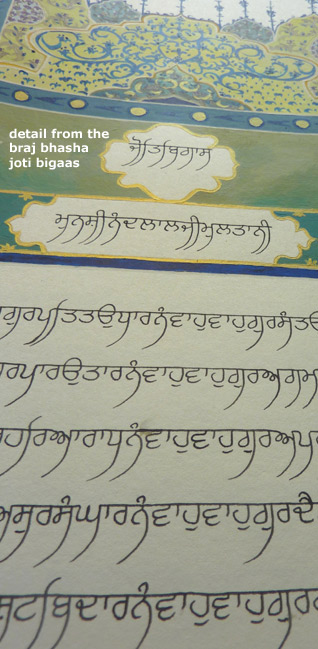 detail from the
braj bhasha
joti bigaas
ਜੋਤਿਬਿਗਾਸ
ਮੁਨਸ਼ੀਨੰਦਲਾਲਜੀਮੁਲਤਾਨੀ
ਗੁਰਪਤਿਤਉਧਾਰਨੰਵਾਹੁਵਾਹੁਗੁਰਸੰਤਉ
ਰਪਾਰਉਤਾਰਨੰਵਾਹੁਵਾਹੁਗੁਰਅਗਮ
ਹਰਿਆਰਾਧਨੰਵਾਹੁਵਾਹੁਗੁਰਅਪ
ਅਸੁਰਸੰਘਾਰਨੰਵਾਹੁਵਾਹੁਗੁਰਦੈ
ਸ਼ਟਬਿਦਾਰਨੰਵਾਹੁਵਾਹੁਗੁਰ